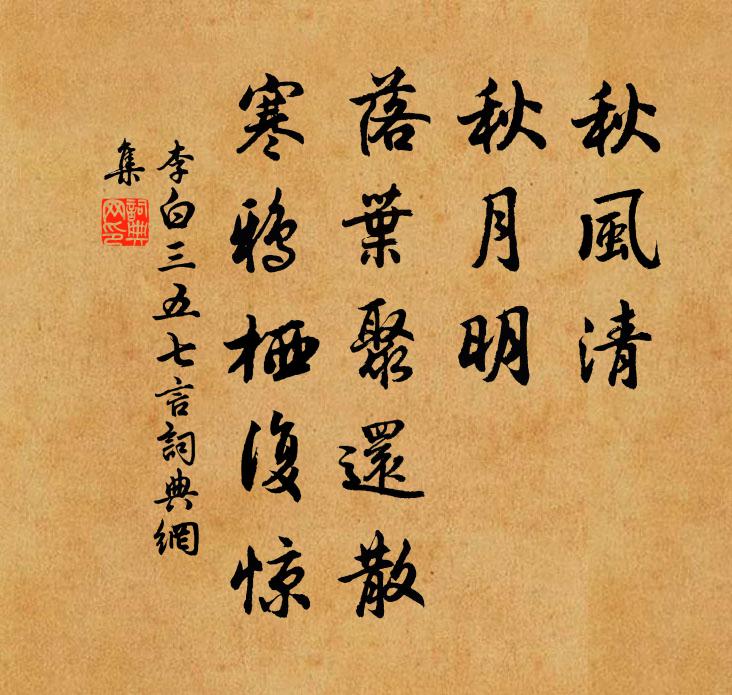 秋風清
秋月明
落葉聚還散
寒鴉栖復惊
李白三五七言詞典網
集
詞典
网印